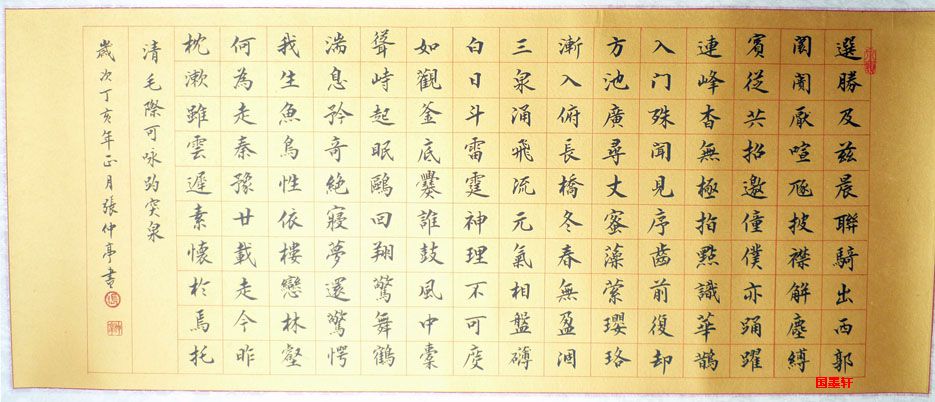 選勝及兹晨聯騎出西郭
闤闠厭喧豗披襟解塵縛
賓從共招邀僮僕亦踊躍
連峰杳無極指點識華鵲
入門殊聞見序齒前復却
方池廣尋丈蜜藻縈瓔珞
漸入俯長橋冬春無盈涸
三泉涌飛流元氣相盤礴
白日斗雷霆神理不可度
如觀釜底爨誰鼓風中橐
聳峙起眠鷗回翔驚舞鶴
湍息矜奇絕寢夢還驚愕
我生魚鳥性依樓戀林壑
何為走秦豫廿載走今昨
枕漱雖雲遲素懷於焉托
清毛際可咏趵突泉
歲次丁亥年正月張仲亭書
国墨轩